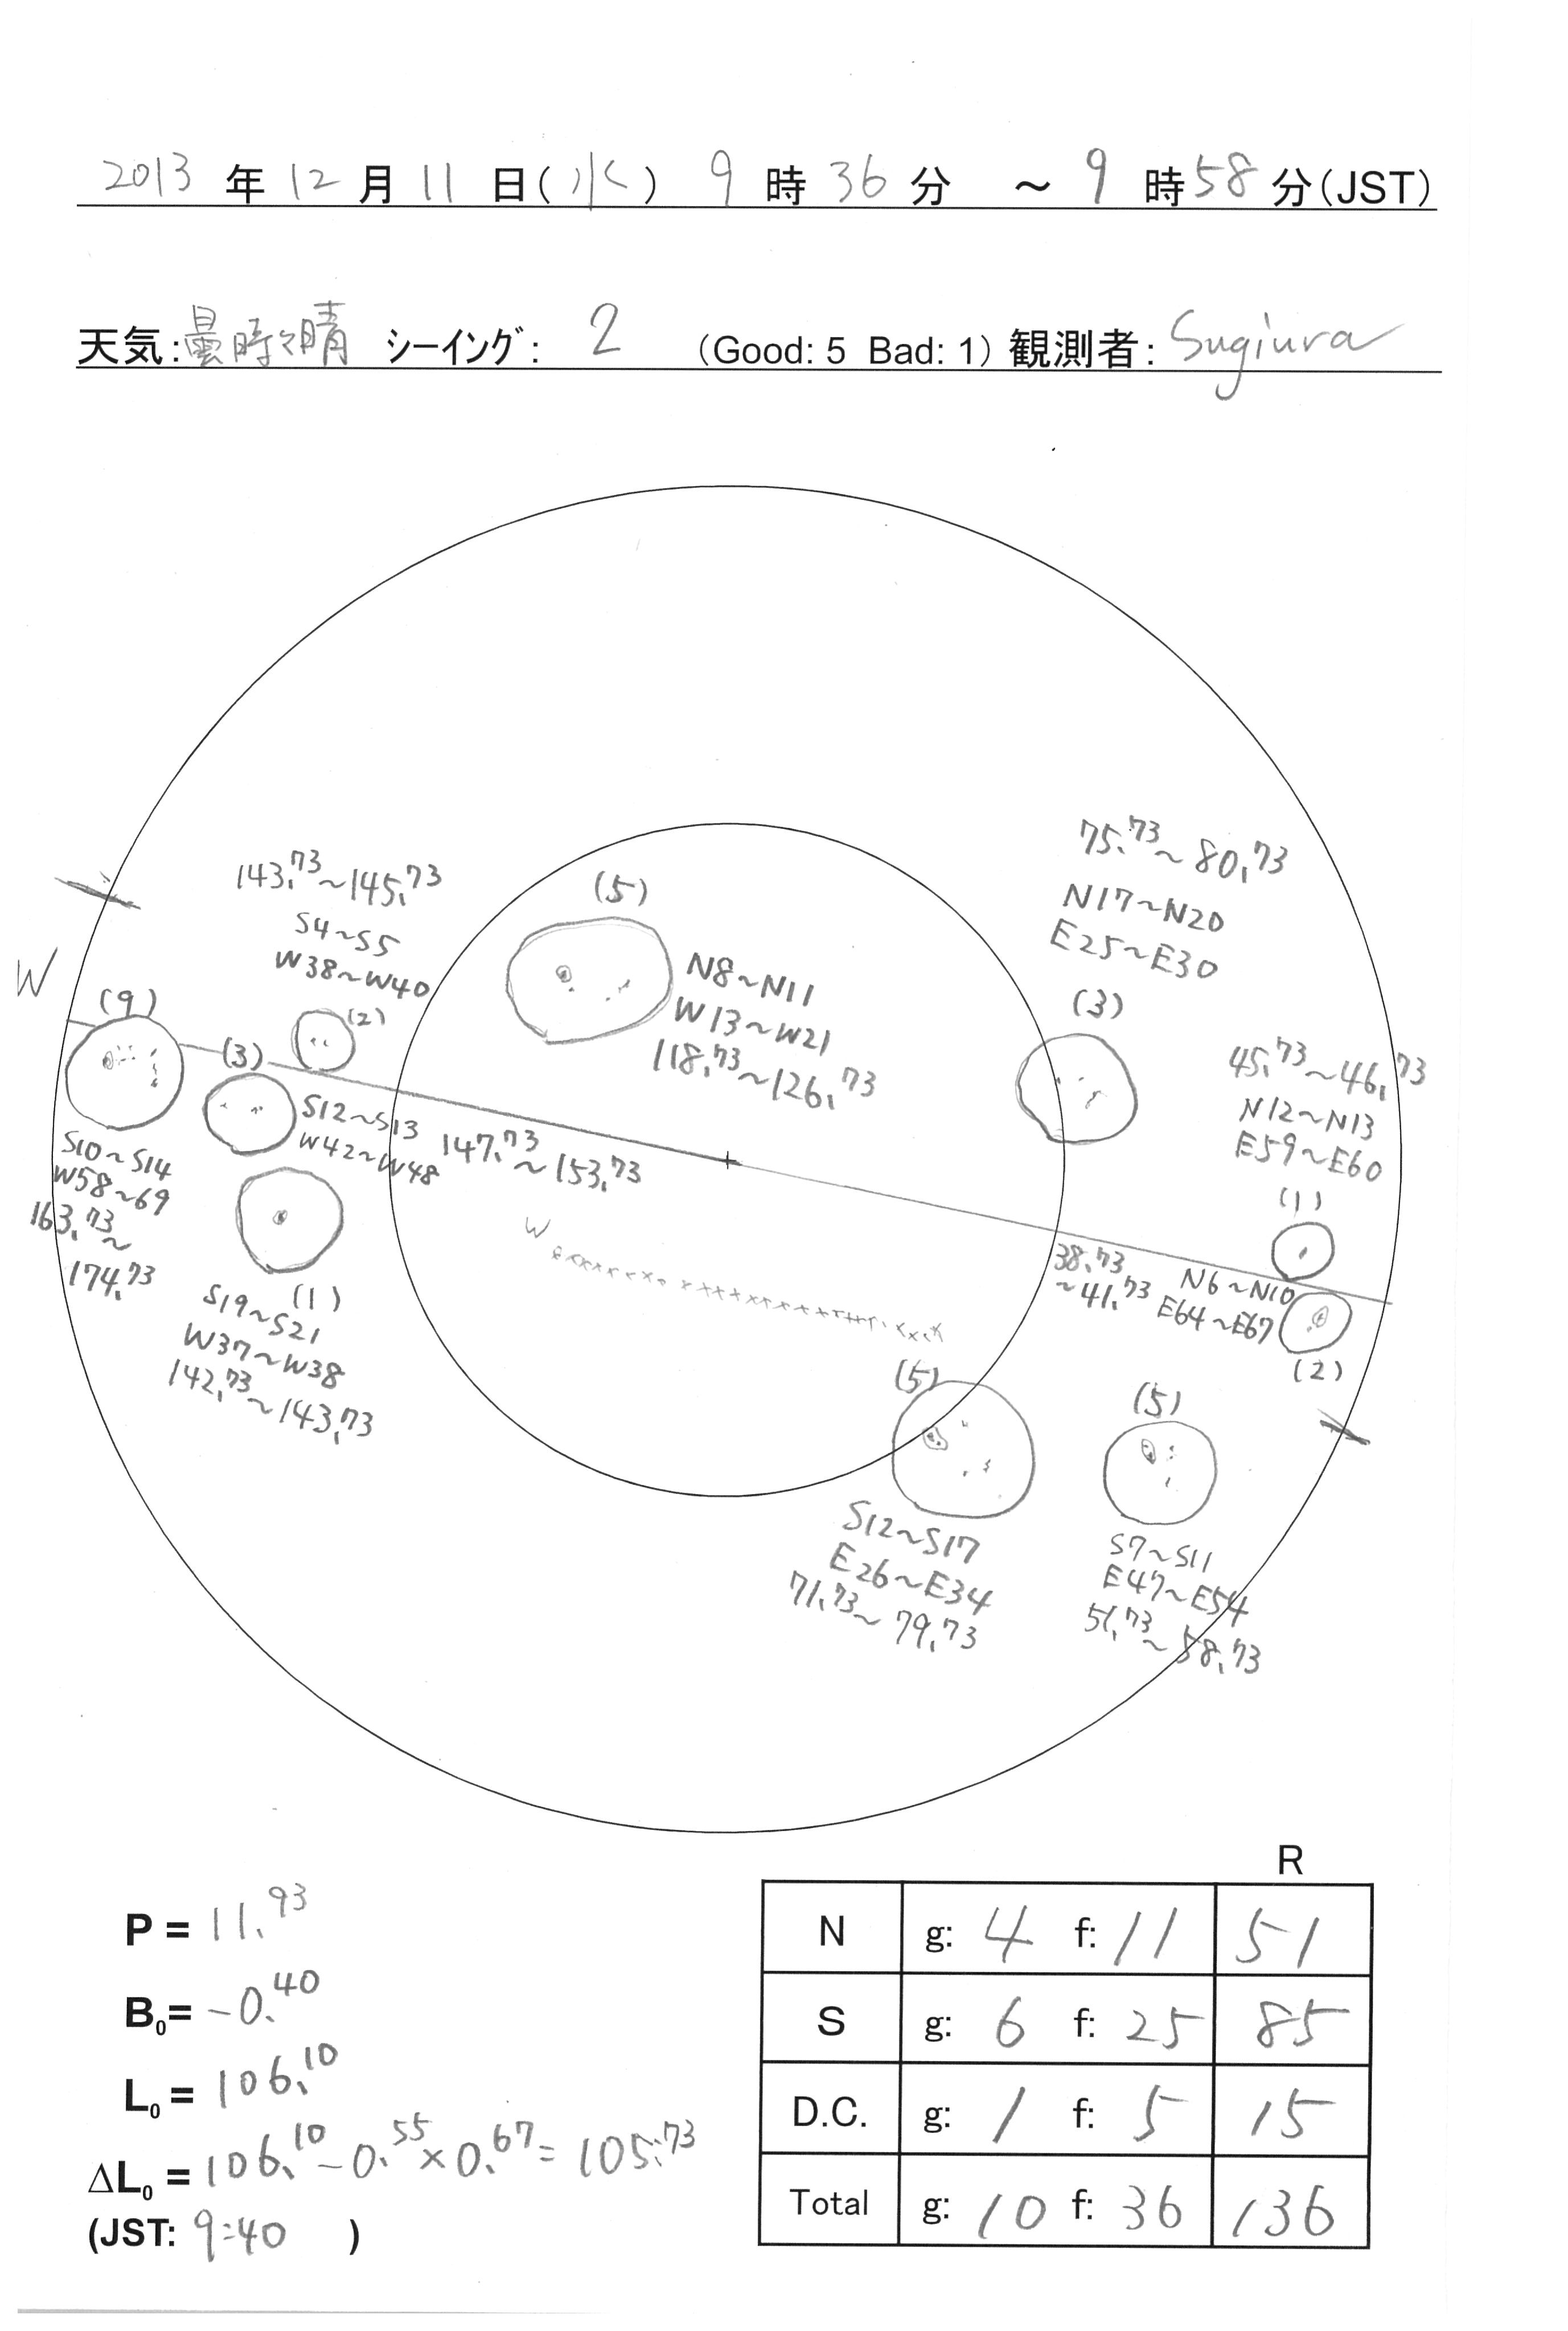 2013 年 12 月 11 日(水) 9 時 36 分 ～ 9 時 58 分(JST)
天気:曇時々晴 シーイング: 2 (Good: 5 Bad: 1) 観測者: Sugiura
75.73～80.73
N17～N20
E25～E30
(3)
143.73～145.73
S4～S5
W38～W40
(2)
(5)
N8～N11
W13～W21
118.73～126.73
W
(9)
S10～S14
W58～69
163.73～
174.73
(3)
S12～S13
W42～W48
147.73～153.73
45.73～46.73
N12～N13
E59～E60
(1)
38.73
～41.73
N6～N10
E64～E67
(2)
W
(1)
S19～S21
W37～W38
142.73～143.73
(5)
S12～S17
E26～E34
71.73～79.73
(5)
S7～S11
E47～E54
51.73～58.73
P = 11.93
B0= -0.40
L0 = 106.10
ΔL0 = 106.10-0.55×0.67=105.73
(JST: 9:40 )
R
N g: 4 f: 11 51
S g: 6 f: 25 85
D.C. g: 1 f: 5 15
Total g: 10 f: 36 136